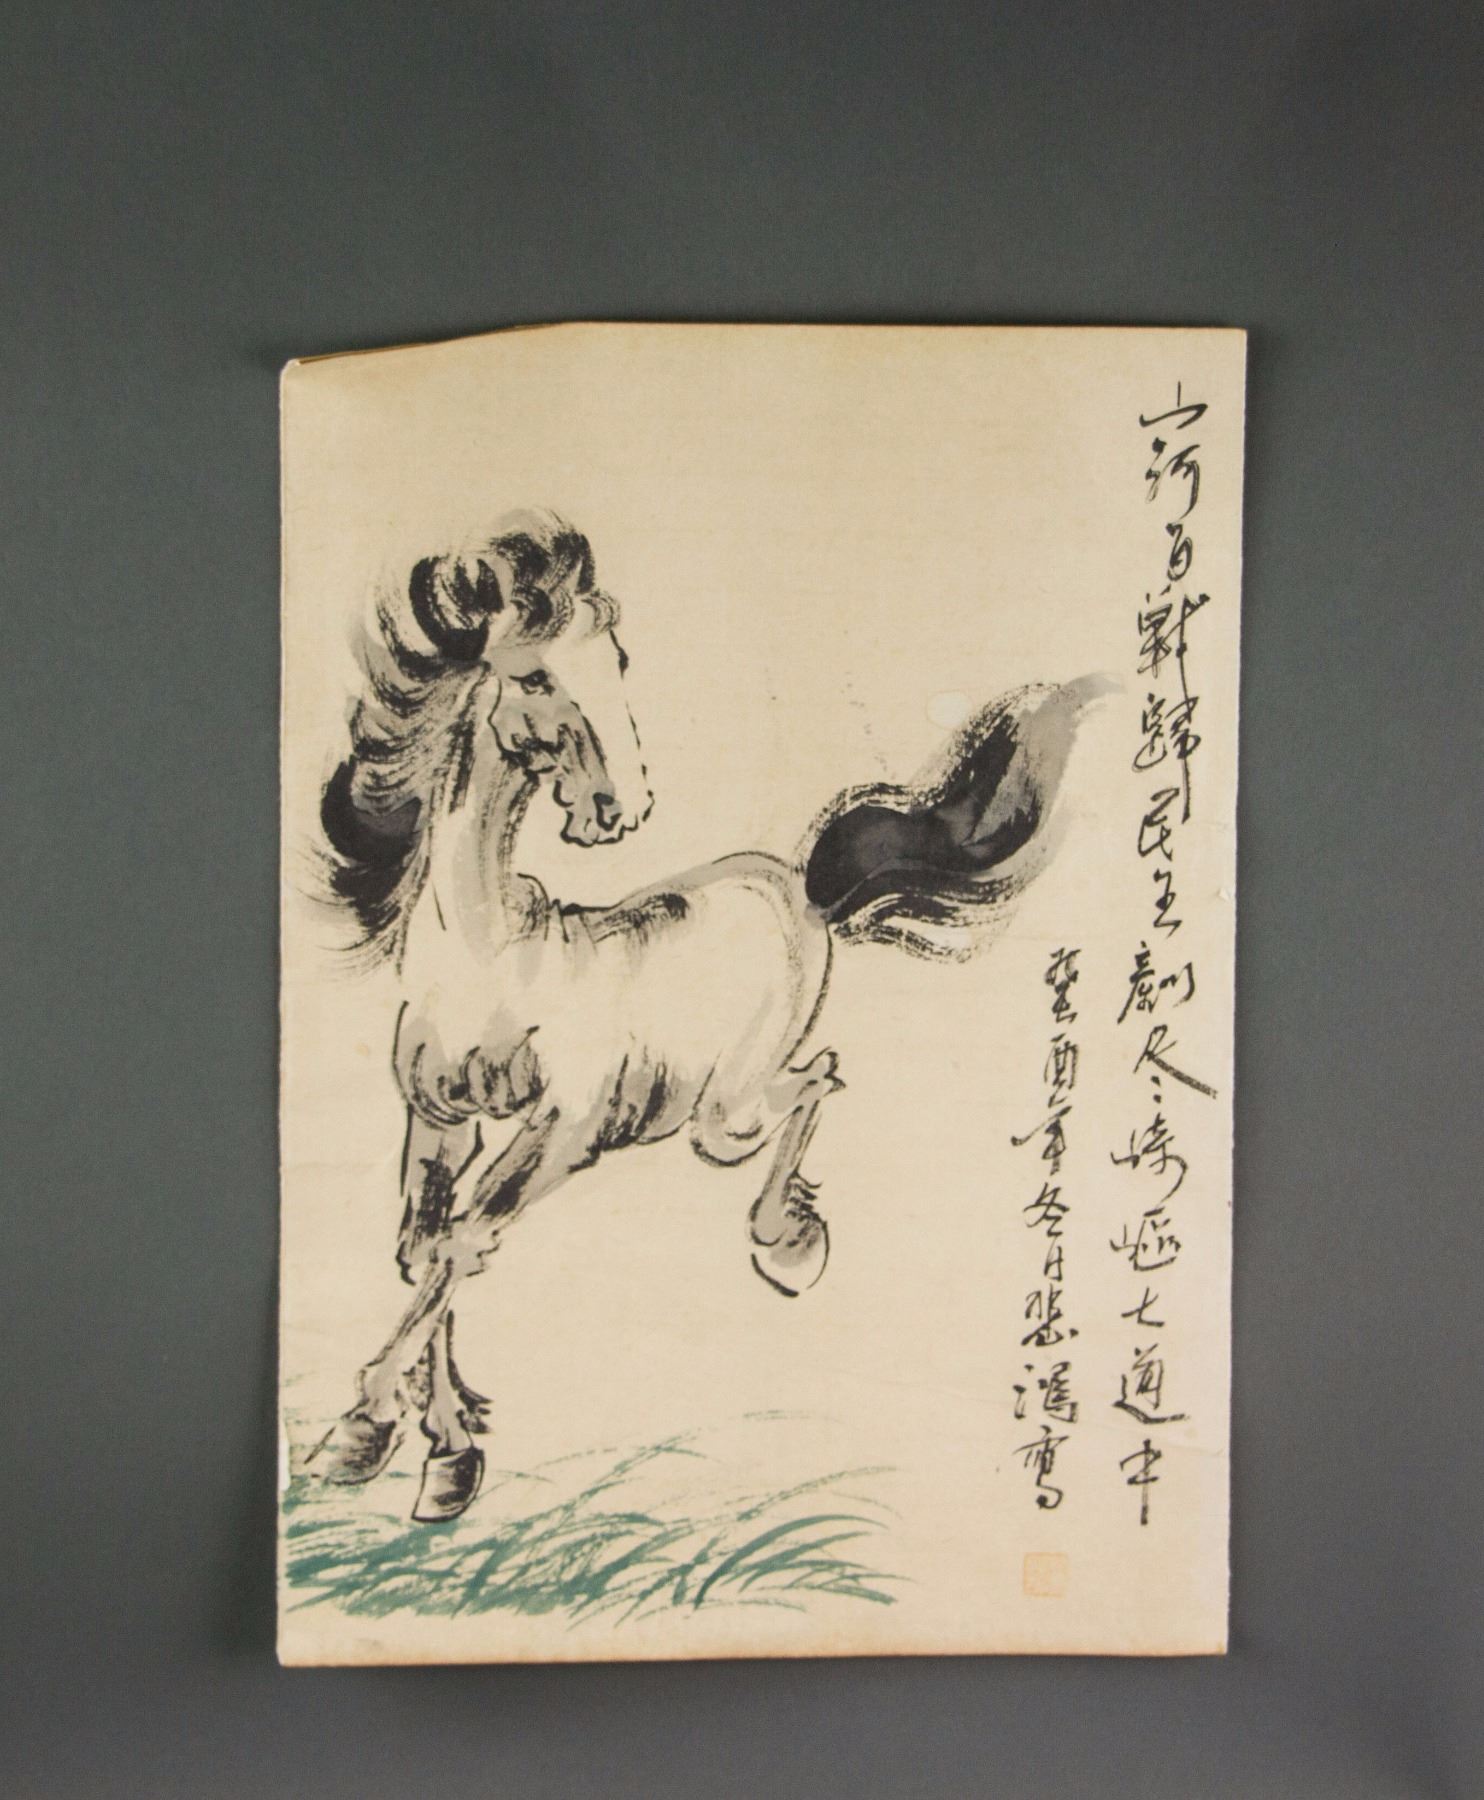 山河百戰歸民主剷尽崎嶇大道中
癸酉年冬日悲鴻寫